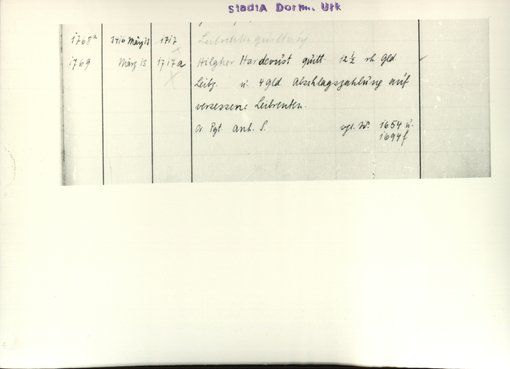 StadtA Dortm. Urk
1768a 1416 März 13 1717 Leibrentenquittung
1769 März 13 1717a Hilgher Harderust quitt 12½ rh Gld
Leibz. u. 4 Gld Abschlagszahlung auf
versessene Leibrenten.
Or. Pgt anh. S. vgl. Nr. 1654 u.
1694 f.